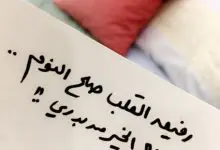 رفيعه القلب صح النوم ..
الخير مد بدري !!